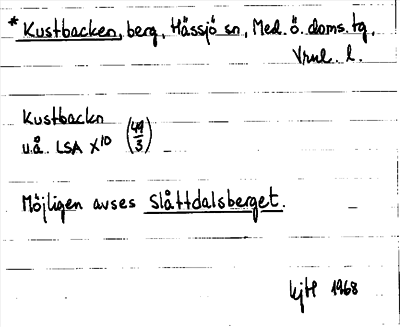 * Kustbacken, berg, Hässjö sn, Med. ö. doms. tg,
Vrml. l.
Kustbackn
u.å. LSA X10 (49/3)
Möjligen avses Slåttdalsberget.
KjH 1968